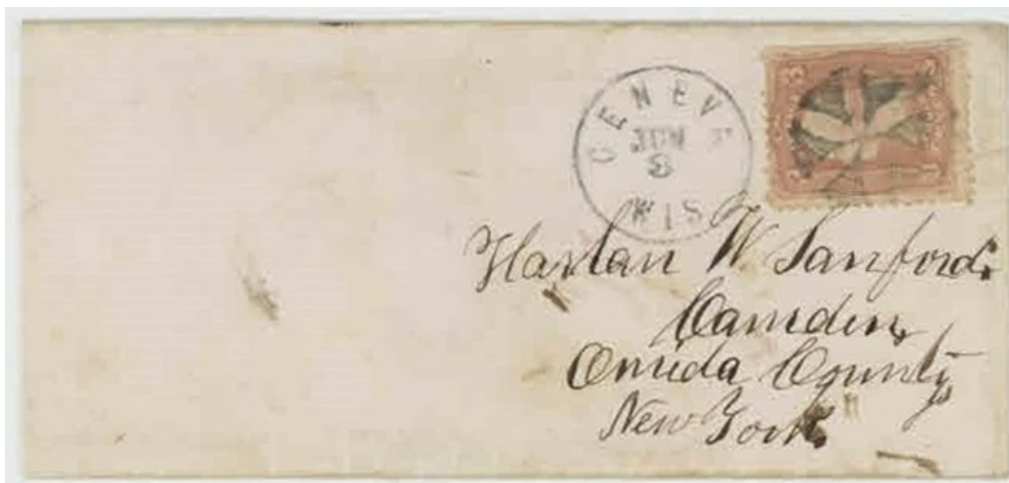 GENEV
JUN
3
WIS
Harlan W. Sanford.
Camden,
Oneida County,
New York.